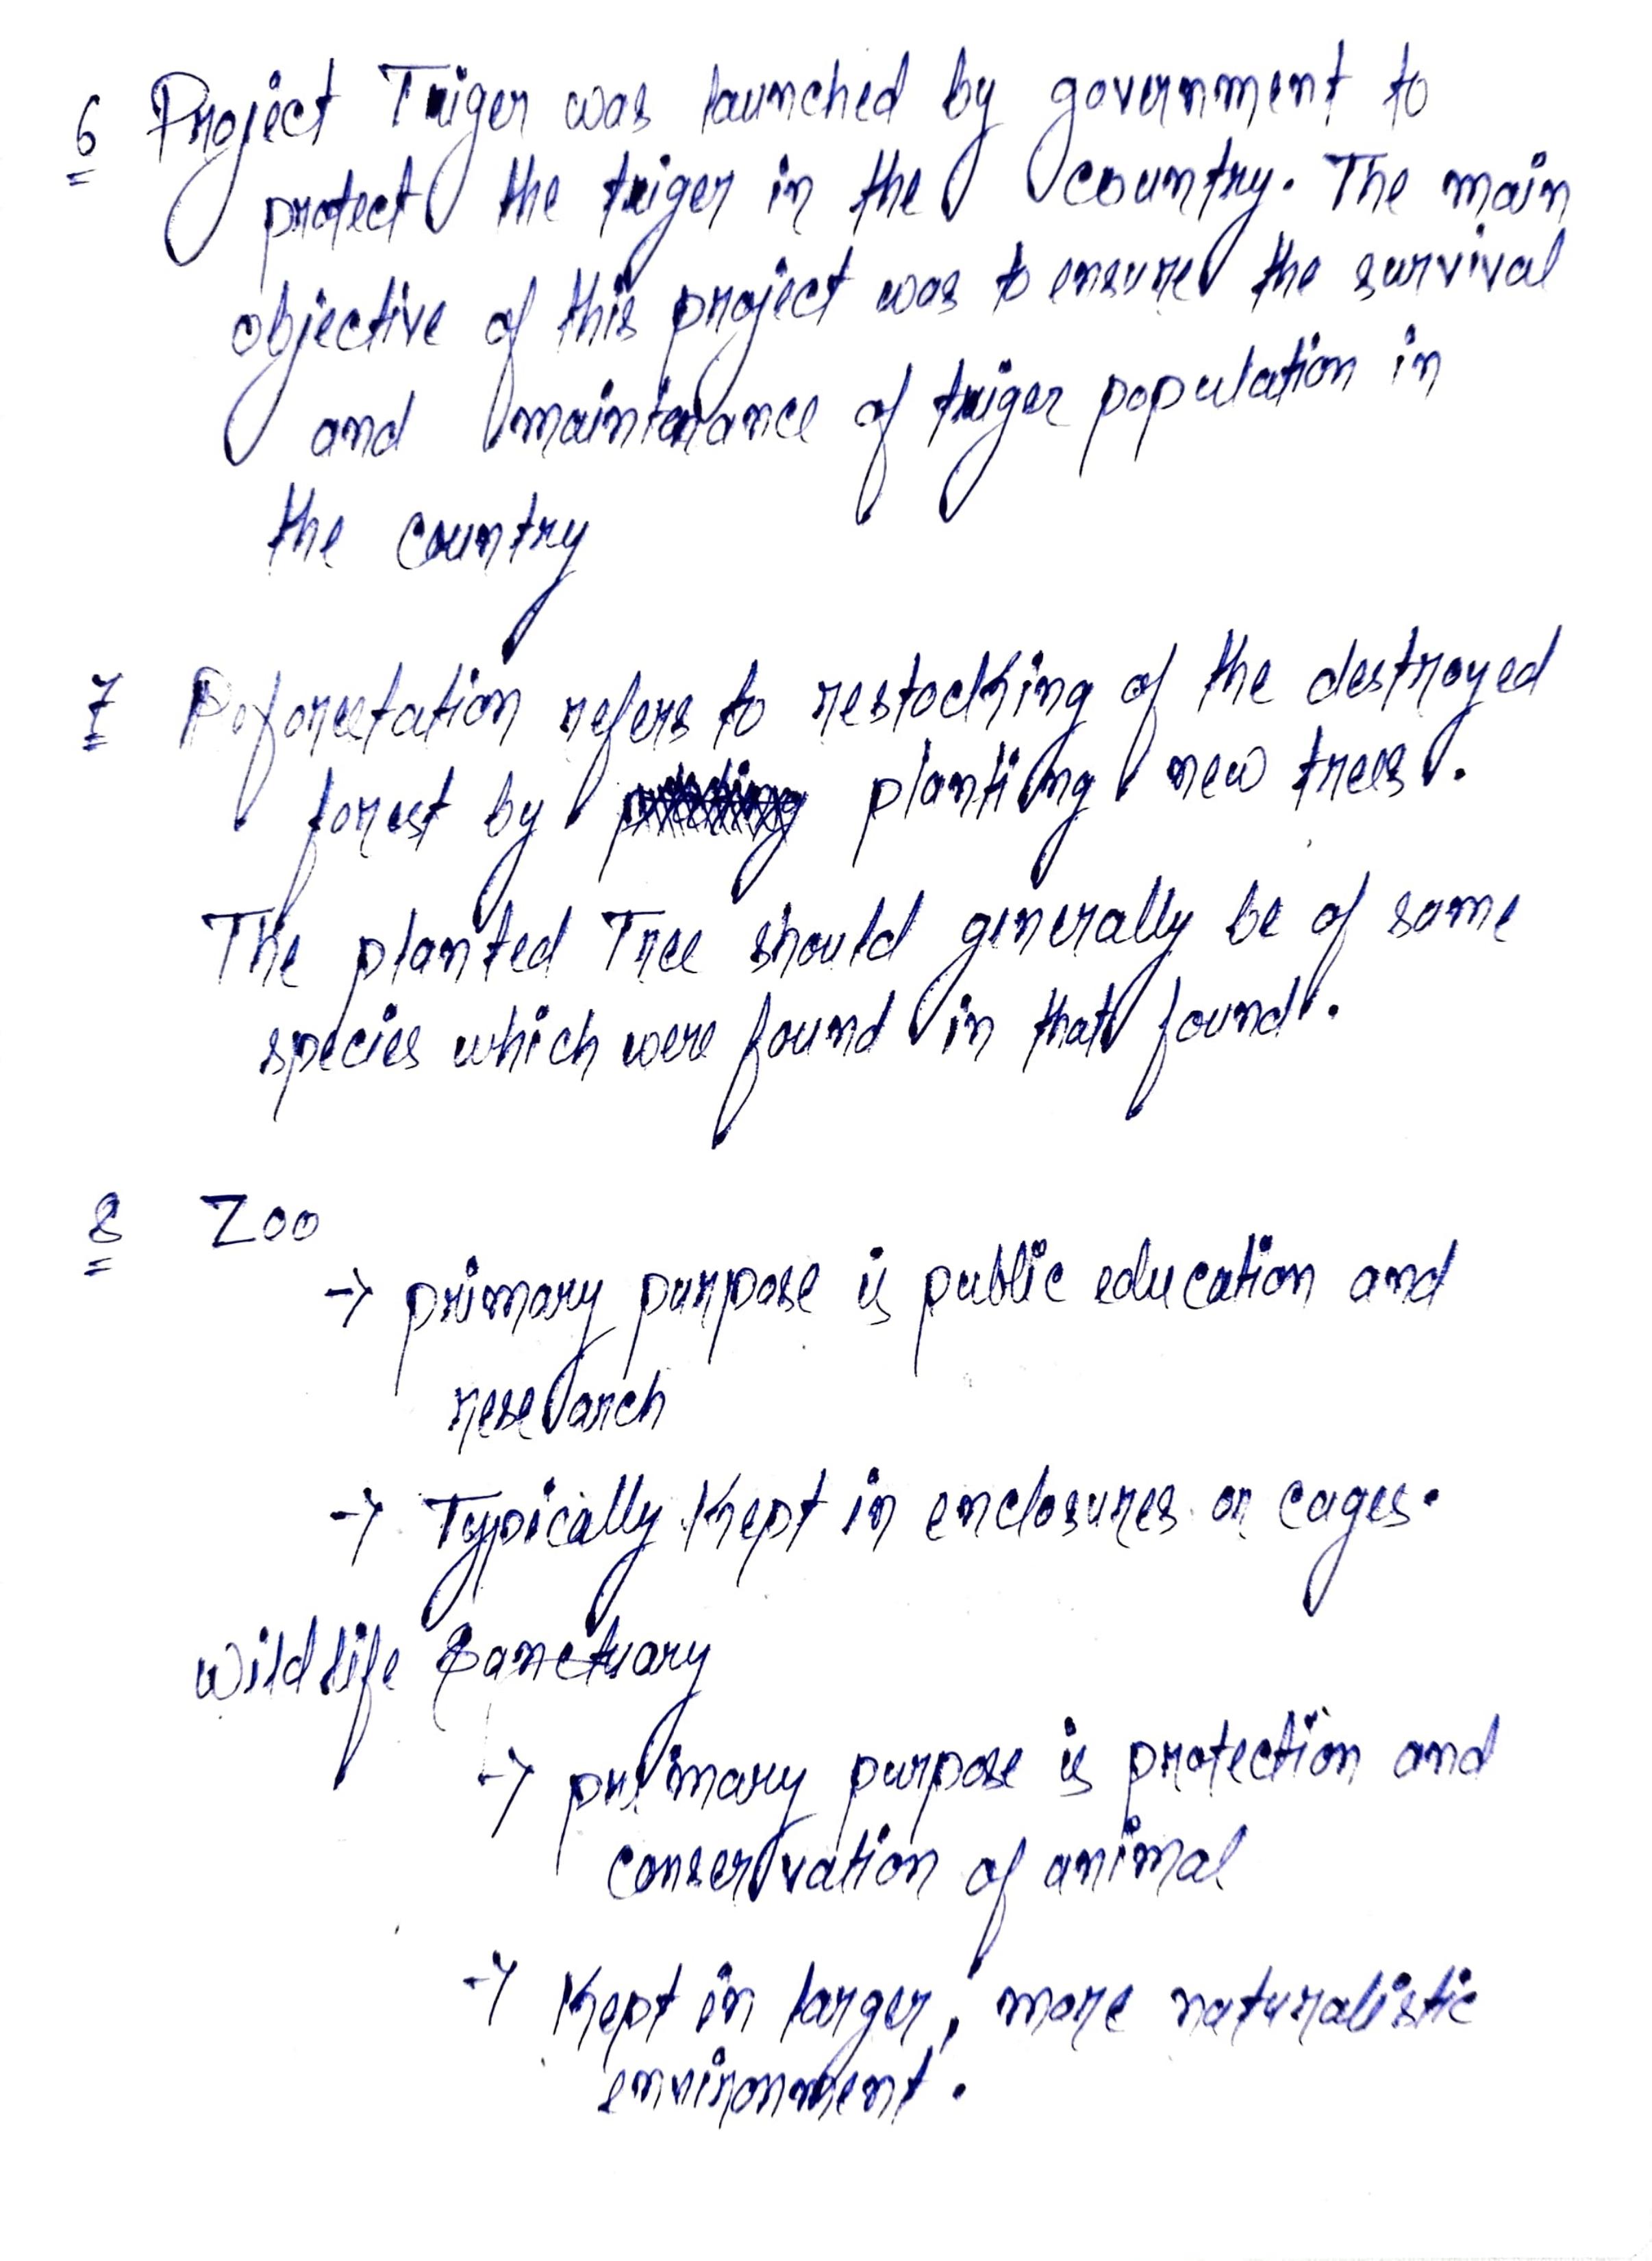 6 Project Triger was launched by government to
protect the triger in the country. The main
objective of this project was to ensure the survival
and maintenance of triger population in
the country
7 Reforestation refers to restocking of the destroyed
forest by planting new trees.
The planted Tree should generally be of same
species which were found in that found.
8 Zoo
→ primary purpose is public education and
research
→ Typically kept in enclosures or cages.
Wildlife Sanctuary
→ primary purpose is protection and
conservation of animal
→ Kept in larger, more naturalistic
environment.